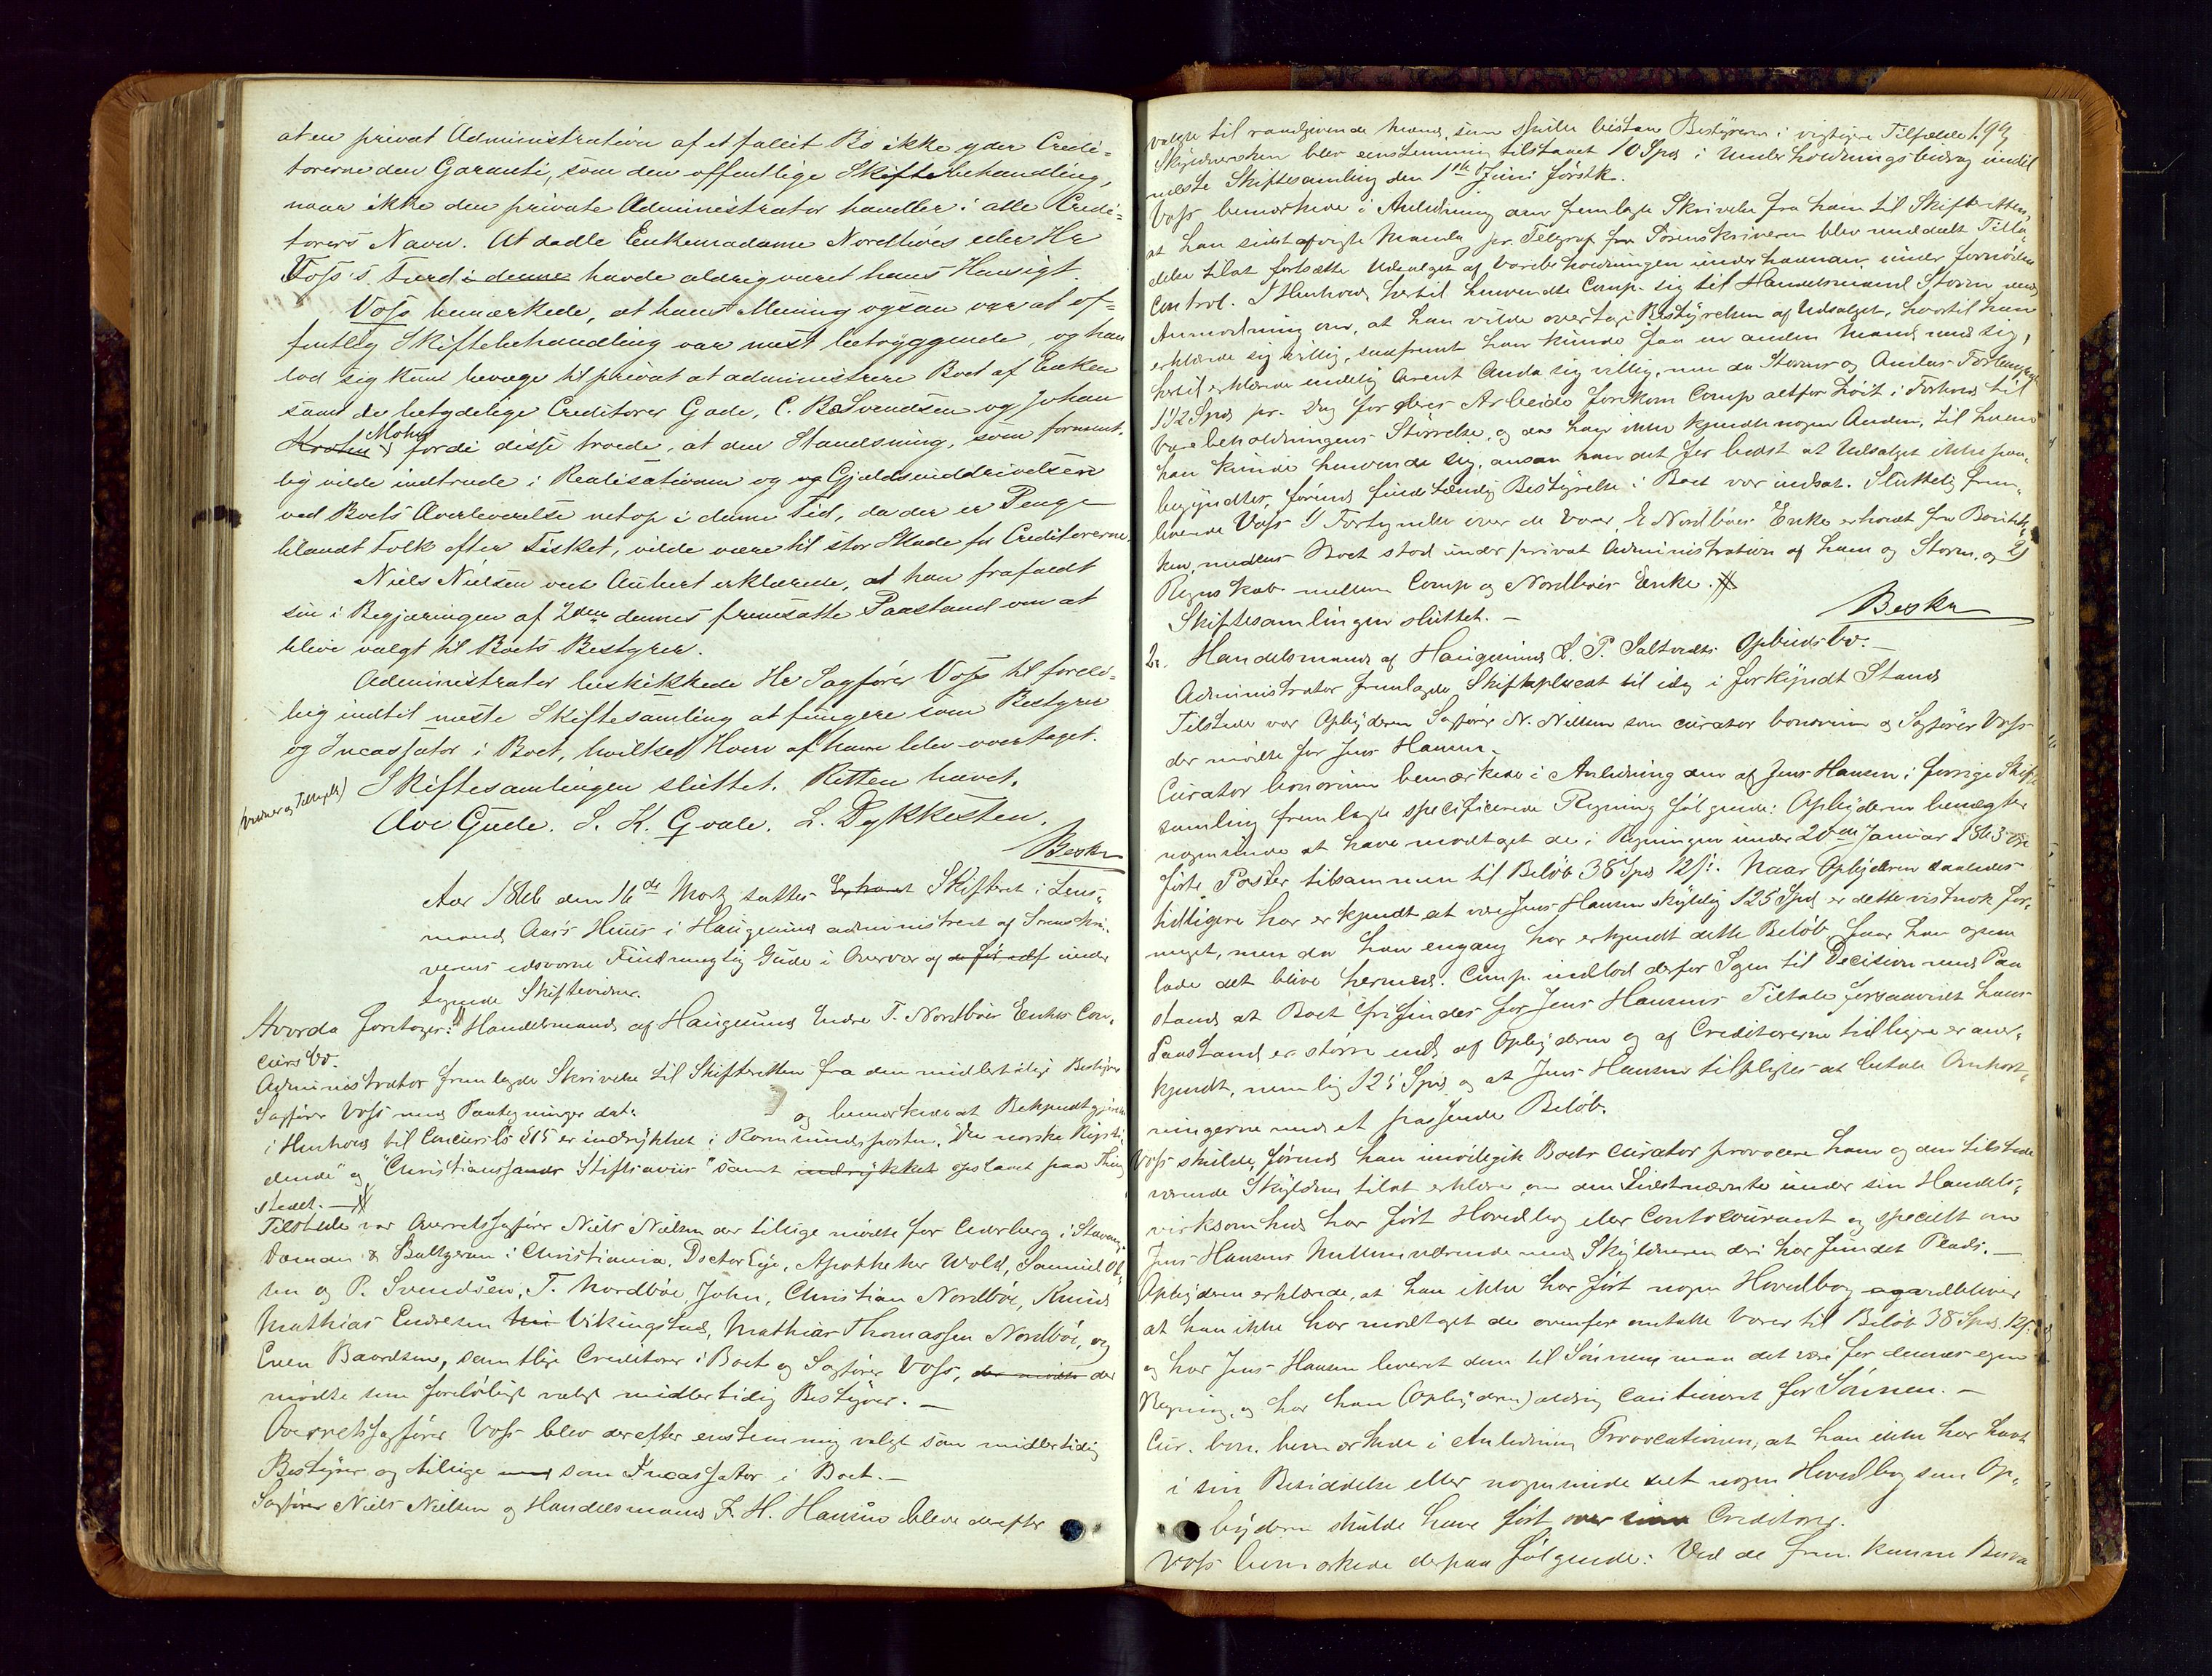 at en privat Administration af et fallit Bo ikke yder Credi-
torerne den Garanti, som den offentlige Skiftebehandling,
naar ikke den private Administrator handler i alle Credi-
torers Navn. At dadle Enkemadame Nordbøes eller Hr
Voss's Færd i denne havde aldrig været hans Hensigt.
Voss bemærkede, at hans Mening ogsaa var at of-
fentlig Skiftebehandling var mest betryggende, og han
lod sig kun bevæge til privat at administrere Boet af Enken
samt de betydelige Creditorer Gade, C. B. Svendsen og Johan
Mohr fordi disse troede, at den Standsning, som forment-
lig vilde indtræde i Realisationen og og Gjældsinddrivelsen
ved Boets Overleverelse netop i denne Tid, da der er Penge
blandt Folk efter Fisket, vilde være til stor Skade for Creditorerne.
Niels Nielsen ved Aubert erklærede, at han frafaldt
sin i Begjæringen af 2den dennes fremsatte Paastand om at
blive valgt til Boets Bestyrer.
Administrator beskikkede Hr Sagfører Voss til forelø-
big indtil næste Skiftesamling at fungere som Bestyrer
og Incassator i Boet, hvilket Hverv af ham blev overtaget.
Skiftesamlingen sluttet. Retten hævet.
Ove Gude. S. K. Qvale. L. Dykkesten.
Beskr
Aar 1866 den 16de Marts sattes Extraret Skifteret i Lens-
mand Aas's Huus i Haugesund administreret af Sorenskri-
verens edsvorne Fuldmægtig Gude i Overvær af under
tegnede Skiftevidner.
Hvorda foretoges: 1) Handelsmand af Haugesund Endre T. Nordbøes Enkes Con-
curs Bo.
Administrator fremlagde Skrivelse til Skifteretten fra den midlertidige Bestyrer
Sagfører Voss med Paategninger dat: og bemærkede at Bekjendtgjørelse
i Henhold til Concurslov §15 er indrykket i Karmsundsposten, "Den norske Rigsti-
dende" og "Christianssands Stiftsavis" samt indrykket opslaaet paa Thing
stedet. —
Tilstede var Overretssagfører Niels Nielsen der tillige mødte for Cederberg i Stavanger
Doman & Baltzersen i Christiania, Doctor Eije, Apotheker Wold, Samuel Ol-
sen og P. Svendsen, T. Nordbøe, John, Christian Nordbøe, Knud
Mathias Endresen Vikingstad, Mathias Thomassen Nordbøe, og
Even Baardsen, samtlige Creditorer i Boet og Sagfører Voss, der mødte der
mødte som foreløbigt valgt midlertidig Bestyrer. —
Overretssagfører Voss blev derefter eenstemmig valgt som midlertidig
Bestyrer og tillige som Incassator i Boet. —
Sagfører Niels Nielsen og Handelsmand F. H. Hansen bleve derefter
199
valgte til raadgivende Mænd, som skulle bistaa Bestyreren i vigtigere Tilfælde.
Skyldnersken blev eenstemmig tilstaaet 10 Spd i Underholdningsbidrag indtil
næste Skiftesamling den 1ste Juni førstk.
Voss bemærkede i Anledning den fremlagte Skrivelse fra ham til Skifteretten,
at han sidstafvigte Mandag pr. Telegraf fra Sorenskriveren blev meddelt Tilla-
delse til at fortsætte Udsalget af Varebeholdningen under haanden under fornøden
Control. I Henhold hertil henvendte Comp. sig til Handelsmand Storm med
Anmodning om, at han vilde overtage Bestyrelsen af Udsalget, hvortil han
erklærede sig villig, saafremt han kunde faa en anden Mand med sig,
hertil erklærede endelig Arent Anda sig villig, men da Storms og Andas Forlangende
1 1/2 Spd pr. Dag for deres Arbeide forekom Comp altfor høit i Forhold til
Varebeholdningens Størrelse, og da han ikke kjendte nogen Anden, til hvem
han kunde henvende sig, ansaa han det for bedst at Udsalget ikke paa-
begyndtes, førend fuldstændig Bestyrelse i Boet var indsat. Sluttelig frem-
leverede Voss 1) Fortegnelse over de Varer, E Nordbøes Enke erholdt fra Boutik-
ken, medens Boet stod under privat Administration af ham og Storm, og 2)
Regnskab mellem Comp og Nordbøes Enke.
Skiftesamlingen sluttet. —
Beskr
2. Handelsmand af Haugesund L. P. Saltvedts Opbudsbo. —
Administrator fremlagde Skifteplacat til idag i forkyndt Stand
Tilstede var Opbyderen Sagfører N. Nielsen som curator bonorum og Sagfører Voss
der mødte for Jens Hansen.
Curator bonorum bemærkede i Anledning den af Jens Hansen i forrige Skifte
samling fremlagte specificerede Regning følgende: Opbyderen benægter
nogensinde at have modtaget de i Regningen under 20de Januar 1863 op
førte Poster tilsammen til Beløb 38 Spd 12 s. Naar Opbyderen saaledes
tidligere har erkjendt at være Jens Hansen skyldig 125 Spd er dette vistnok for-
meget, men da han engang har erkjendt dette Beløb, faar han ogsaa
lade det blive herved. Comp. indlod derfor Sagen til Decision med Paa
stand at Boet frifindes for Jens Hansens Tiltale forsaavidt hans
Paastand er større end af Opbyderen og af Creditorerne tidligere er aner-
kjendt, nemlig 125 Spd, og at Jens Hansen tilpligtes at betale Omkost-
ningerne med et passende Beløb.
Voss skulde, førend han imødegik Boets Curator provocere ham og den tilstede
værende Skyldner til at erklære, om den Sidstnævnte under sin Handels-
virksomhed har ført Hovedbog eller Contocourant og specielt om
Jens Hansens Mellemværende med Skyldneren deri har fundet Plads. —
Opbyderen erklærede, at han ikke har ført nogen Hovedbog
at han ikke har modtaget de ovenfor omtalte Varer til Beløb 38 Spd. 12 s.
og har Jens Hansen leveret dem til Sønnen maa det være for dennes egen
Regning, og har han (Opbyderen) aldrig cautioneret for Sønnen. —
Cur. bon. bemærkede i Anledning Provocationen, at han ikke har havt
i sin Besiddelse eller nogensinde seet nogen Hovedbog som Op-
byderen skulde have ført over sine Creditorer.
Voss bemærkede derpaa følgende: Ved de frem.